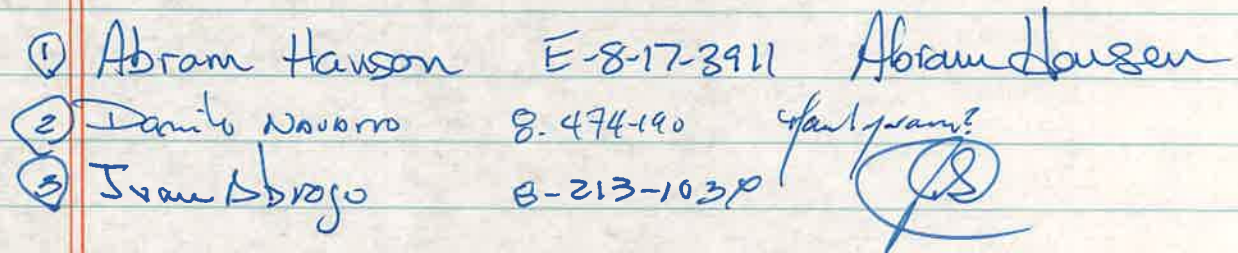 ① Abram Hanson E-8-17-3911 Abram Hansen
② Danilo Navarro 8.474-190
③ Ivan Abrego 8-213-1034